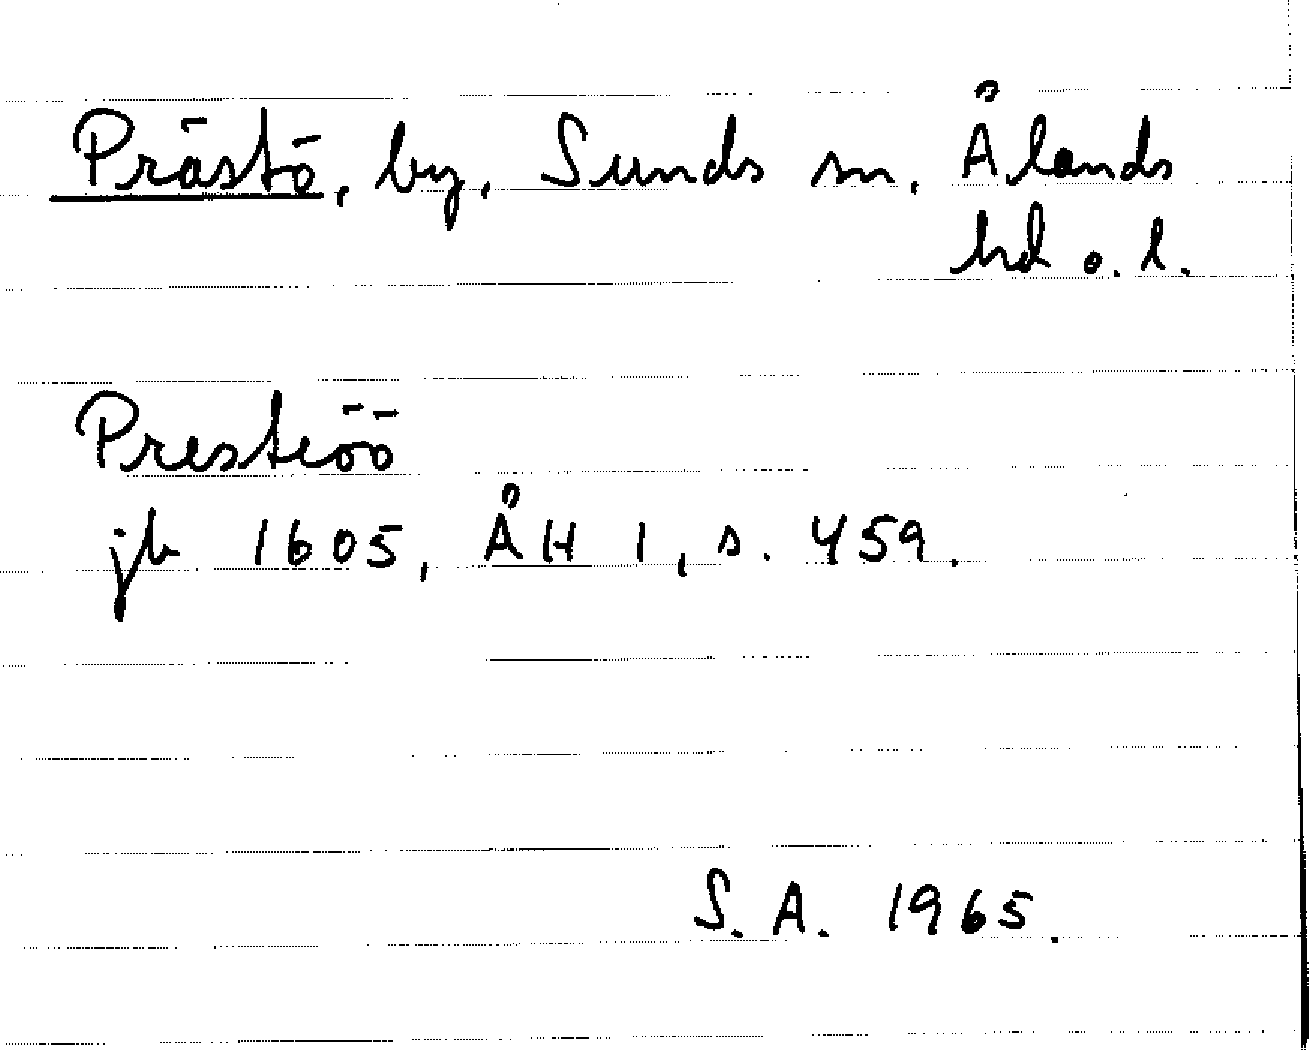 Prästö, by, Sunds sn, Ålands
hd o. l.
Presteöö
jb 1605, ÅH 1, s. 459.
S. A. 1965.